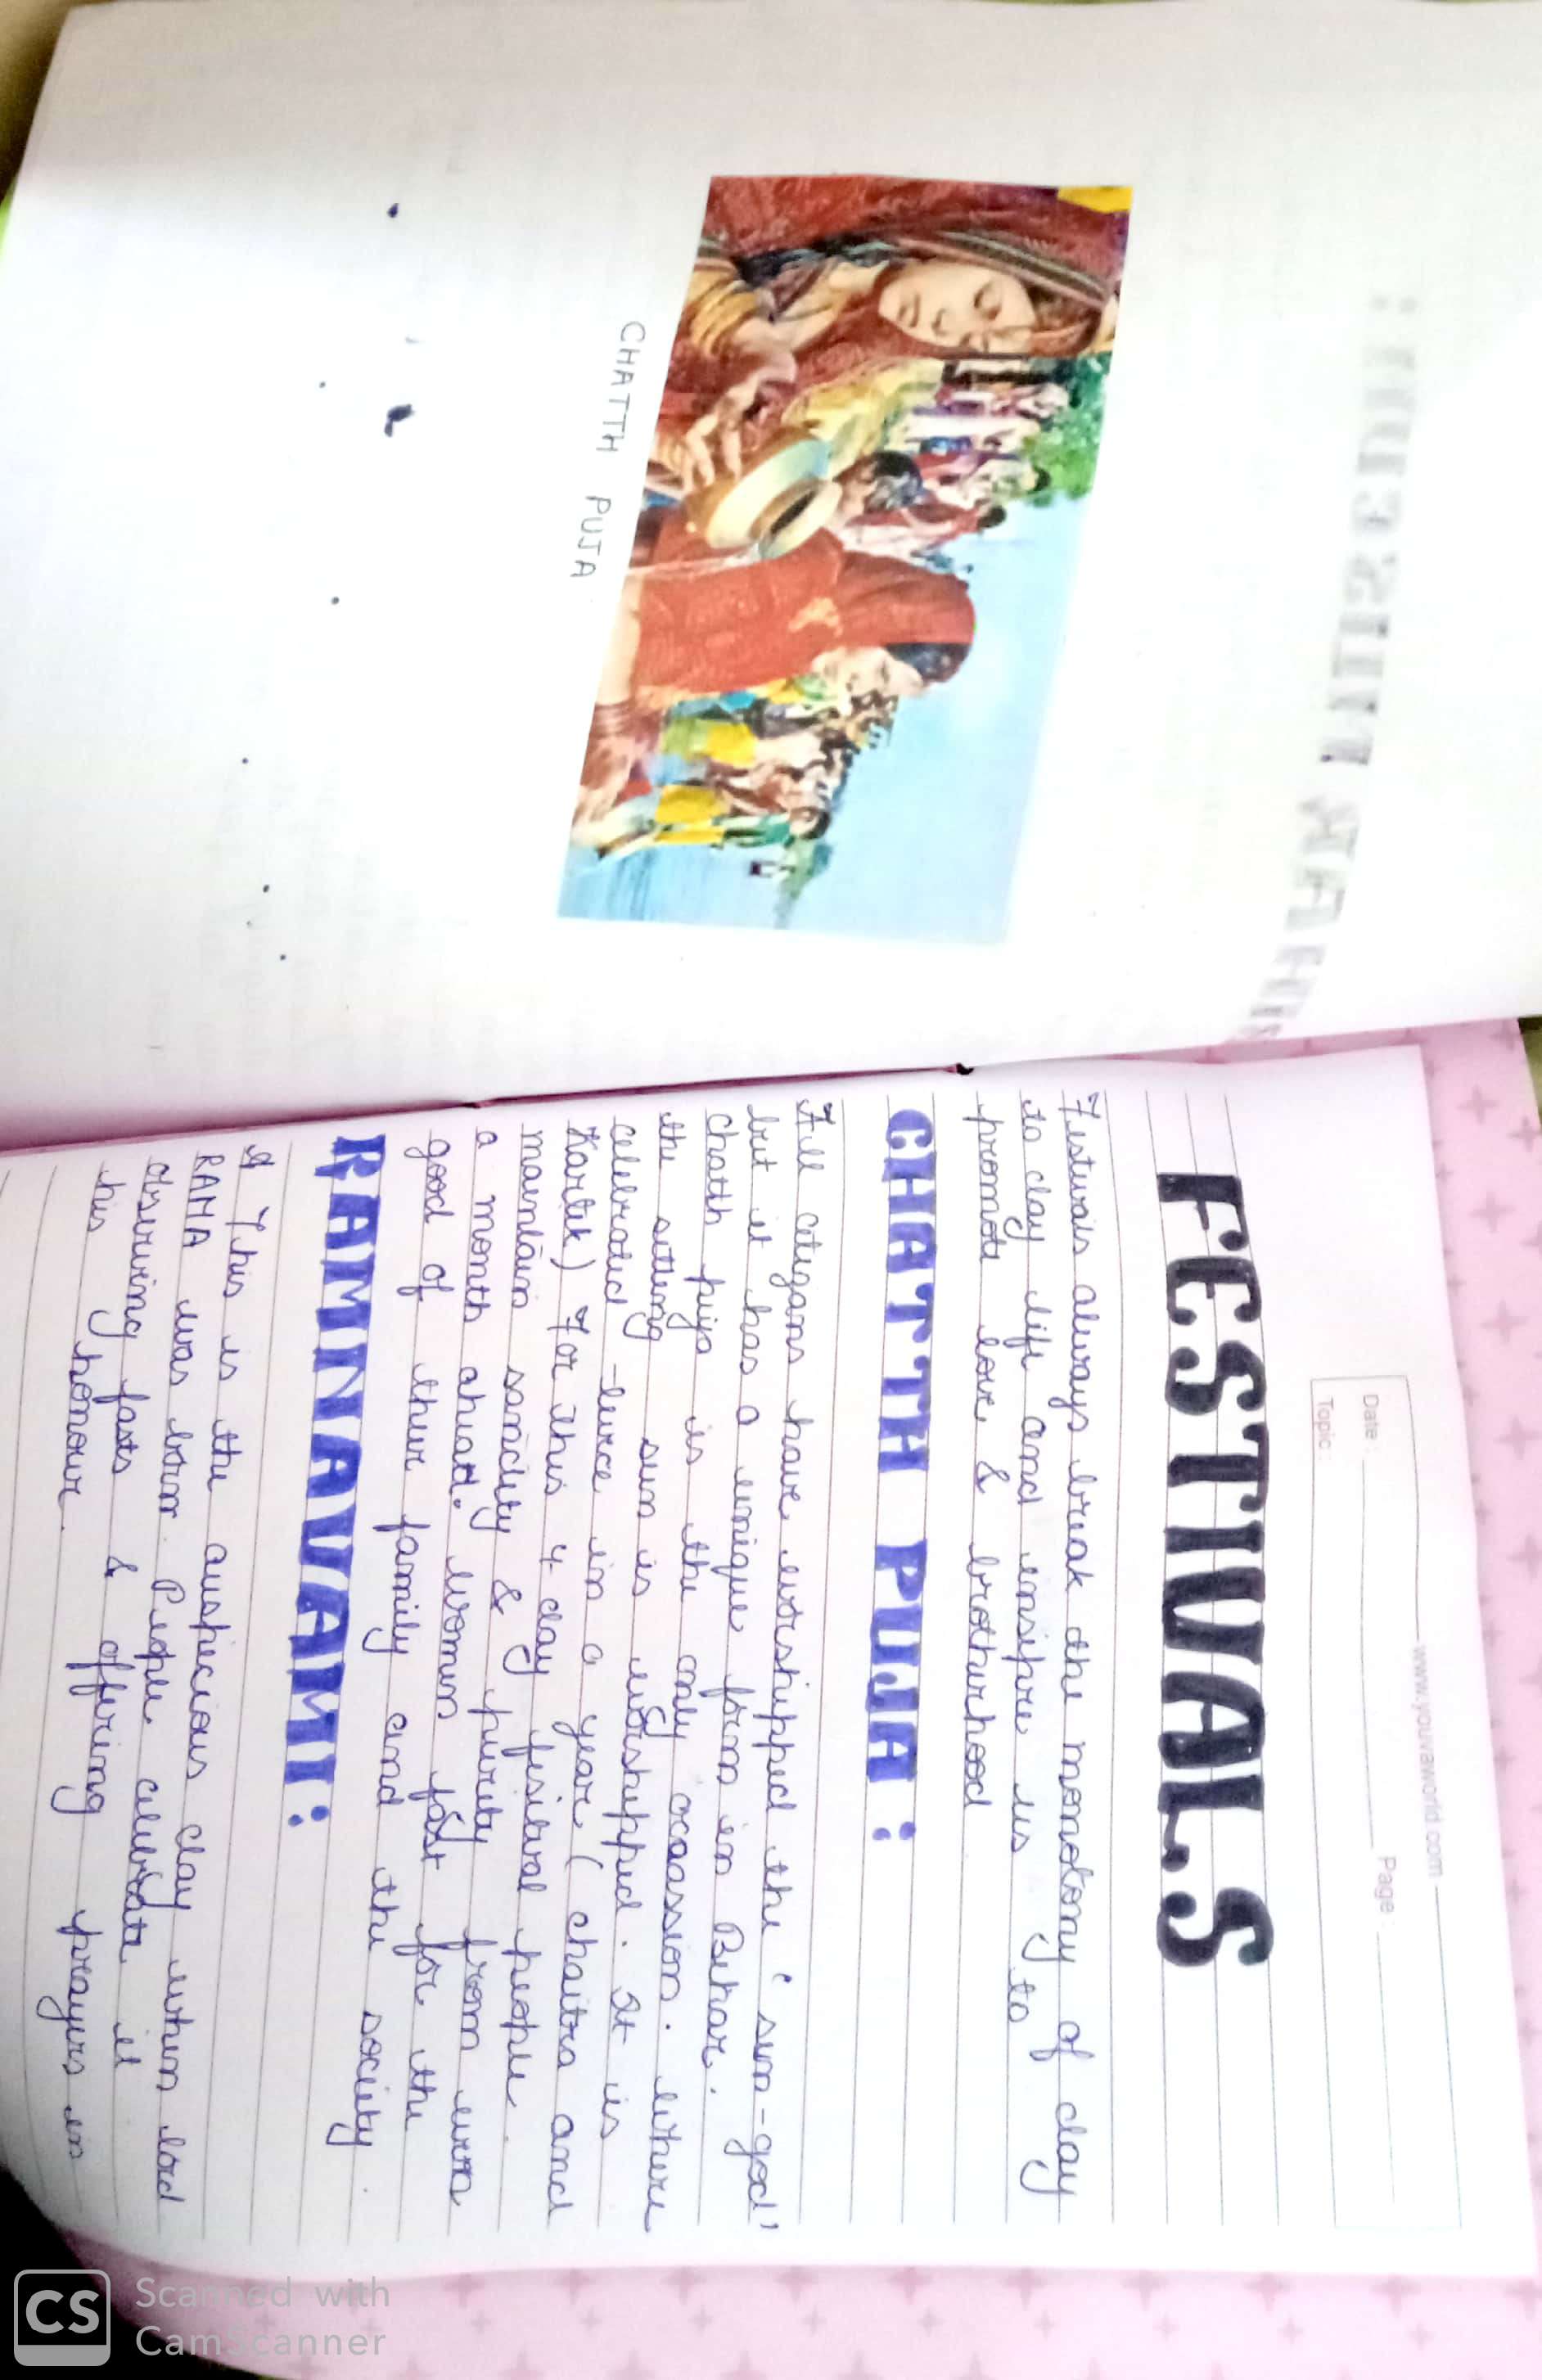 CHATTH PUJA
www.youvaworld.com
Date: Page
Topic:
FESTIVALS
Festivals always break the monotony of day
to day life and inspire us to
promote love & brotherhood
CHATTH PUJA:
All citizans have worshipped the 'sun-god'
but it has a unique form in Bihar.
chatth puja is the only ocassion. where
the setting sun is worshipped. It is
celebrated twice in a year (chaitra and
Kartik) For this 4 day festival people
maintain sanctity & purity from even
a month ahead. women fast for the
good of their family and the society.
RAMNAVAMI:
This is the auspecious day when lord
RAMA was born. People celebrate it
observing fasts & offering prayers in
his honour.
CS Scanned with
CamScanner